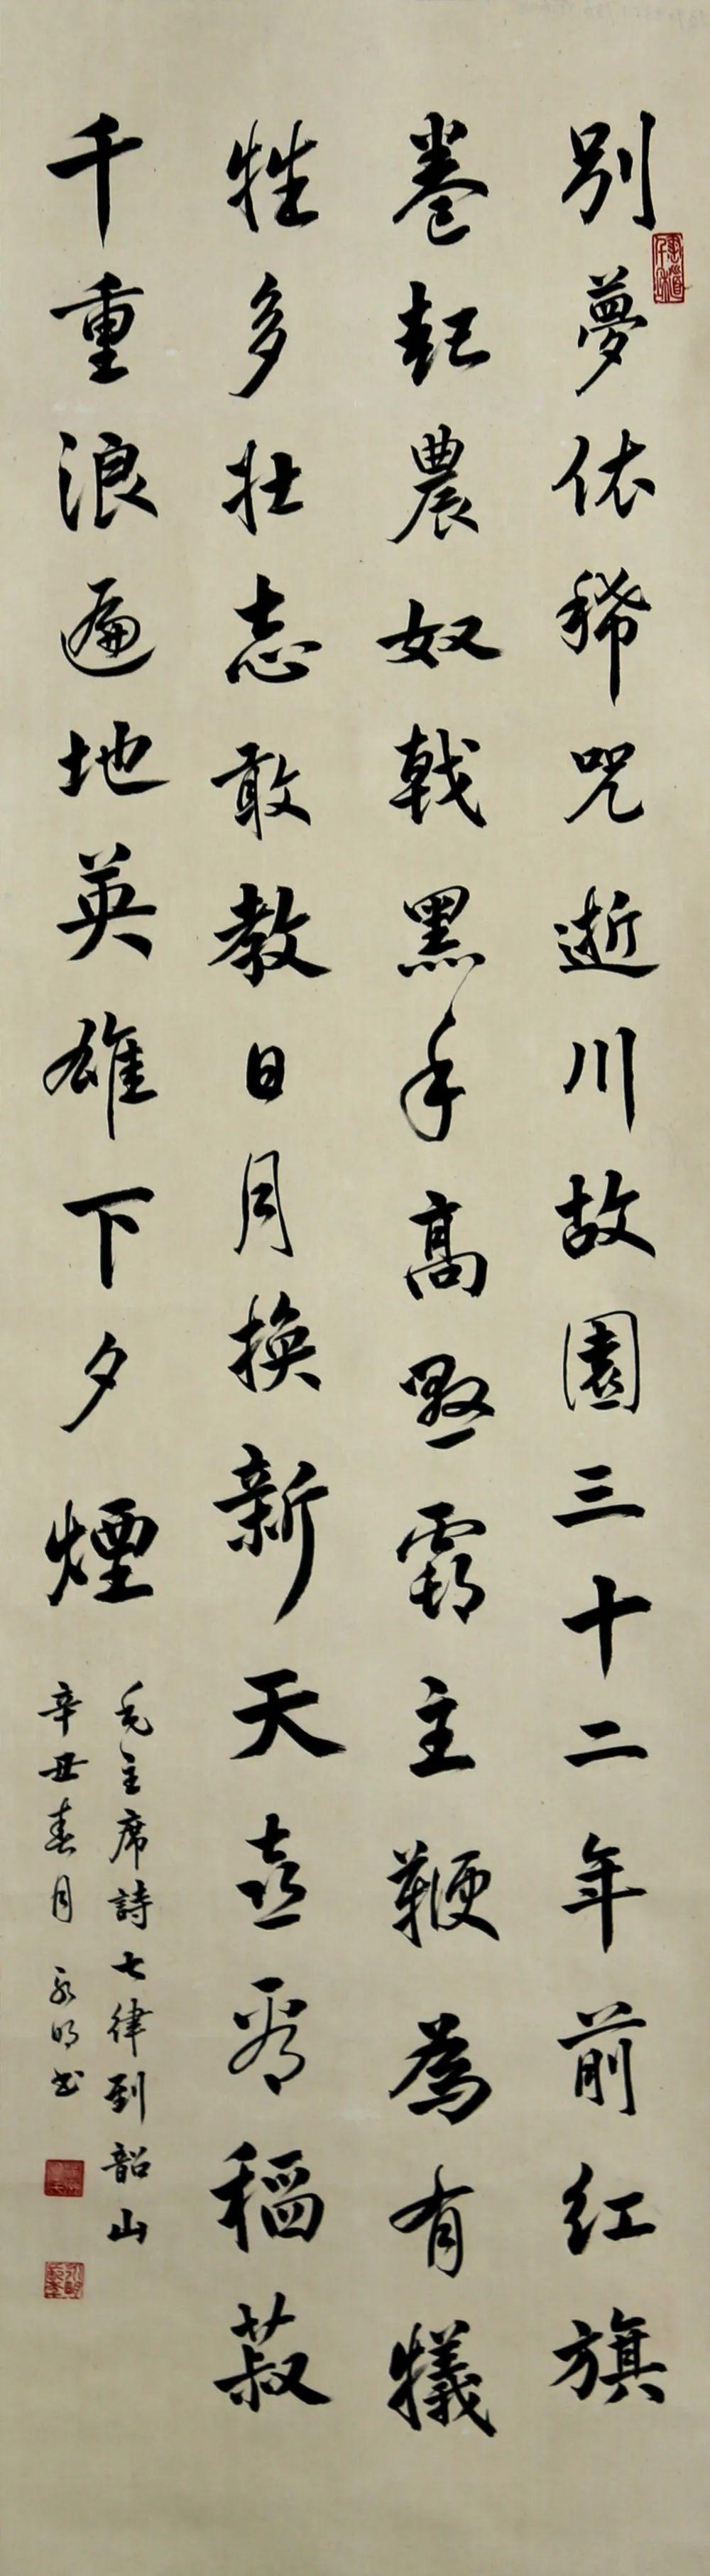 別夢依稀咒逝川故園三十二年前红旗
卷起農奴戟黑手高懸霸主鞭為有犧
牲多壯志敢教日月換新天喜看稻菽
千重浪遍地英雄下夕煙
毛主席詩七律到韶山
辛丑春月 永明书